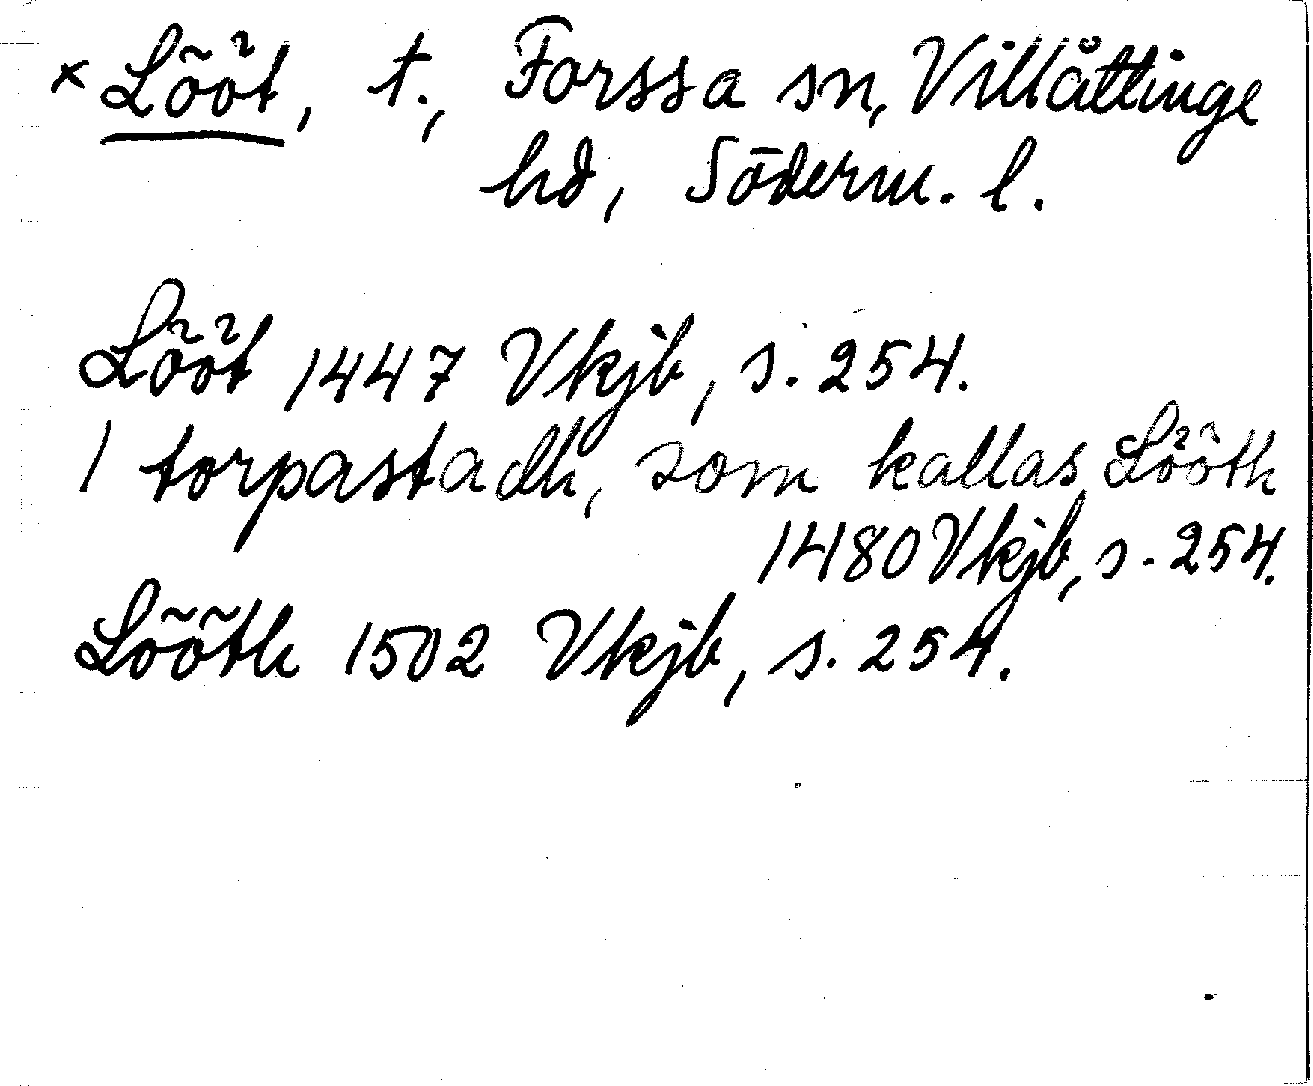 × Lööt, t., Forssa sn, Villåttinge
hd, Söderm. l.
Lööt 1447 Vkjb, s. 254.
1 torpastadh, som kallas Lööth
1480 Vkjb, s. 254.
Lööth 1502 Vkjb, s. 254.